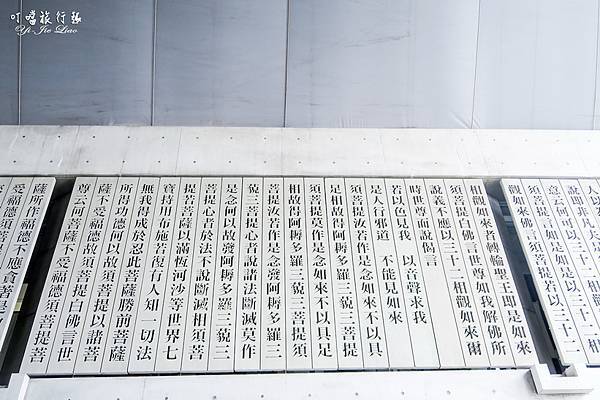 叮噹旅行趣
Yi-Jie Liao
人以
說即非凡夫是
意云何可以三十二相
須菩提言如是如是以三十二
觀如來佛言須菩提若以三十二
觀如來者轉輪聖王即是如來
須菩提白佛言世尊如我解佛所
說義不應以三十二相觀如來爾
時世尊而說偈言
若以色見我　以音聲求我
是人行邪道　不能見如來
須菩提汝若作是念如來不以具
足相故得阿耨多羅三藐三菩提
須菩提莫作是念如來不以具足
相故得阿耨多羅三藐三菩提須
菩提汝若作是念發阿耨多羅三
藐三菩提心者說諸法斷滅莫作
是念何以故發阿耨多羅三藐三
菩提心者於法不說斷滅相須菩
提若菩薩以滿恆河沙等世界七
寶持用布施若復有人知一切法
無我得成於忍此菩薩勝前菩薩
所得功德何以故須菩提以諸菩
薩不受福德故須菩提白佛言世
尊云何菩薩不受福德須菩提菩
薩所作福德不應貪著是
受福德須菩